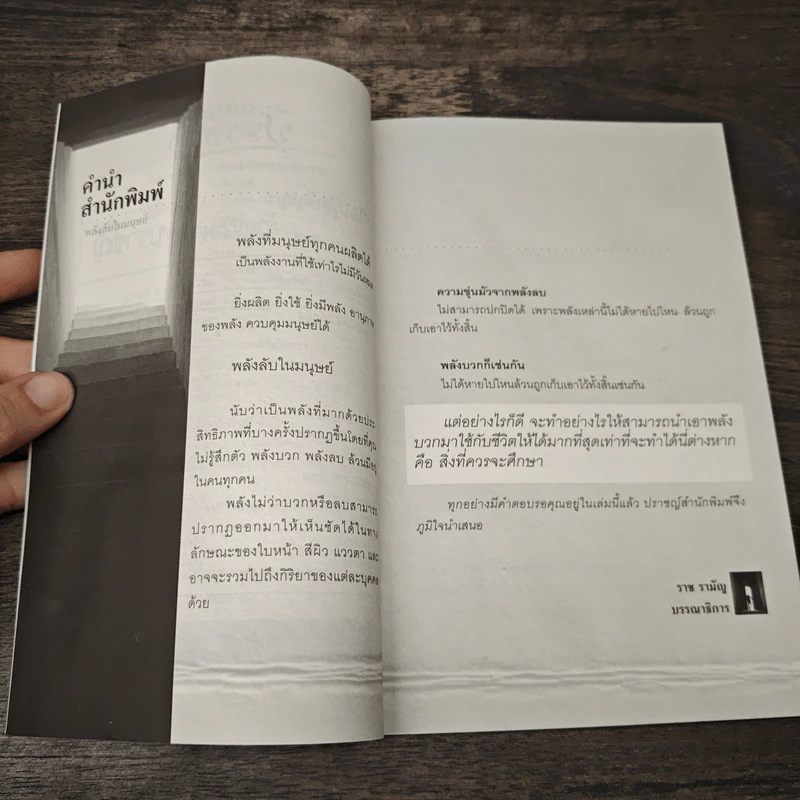 คำนำ
สำนักพิมพ์
พลังลับในมนุษย์
พลังที่มนุษย์ทุกคนผลิตได้
เป็นพลังงานที่ใช้เท่าไรไม่มีวันหมด
ยิ่งผลิต ยิ่งใช้ ยิ่งมีพลัง อานุภาพ
ของพลัง ควบคุมมนุษย์ได้
พลังลับในมนุษย์
นับว่าเป็นพลังที่มากด้วยประ
สิทธิภาพที่บางครั้งปรากฏขึ้นโดยที่คุณ
ไม่รู้สึกตัว พลังบวก พลังลบ ล้วนมีอยู่
ในคนทุกคน
พลังไม่ว่าบวกหรือลบสามารถ
ปรากฏออกมาให้เห็นชัดได้ในทาง
ลักษณะของใบหน้า สีผิว แววตา และ
อาจจะรวมไปถึงกิริยาของแต่ละบุคคล
ด้วย
ความขุ่นมัวจากพลังลบ
ไม่สามารถปกปิดได้ เพราะพลังเหล่านี้ไม่ได้หายไปไหน ล้วนถูก
เก็บเอาไว้ทั้งสิ้น
พลังบวกก็เช่นกัน
ไม่ได้หายไปไหนล้วนถูกเก็บเอาไว้ทั้งสิ้นเช่นกัน
แต่อย่างไรก็ดี จะทำอย่างไรให้สามารถนำเอาพลัง
บวกมาใช้กับชีวิตให้ได้มากที่สุดเท่าที่จะทำได้นี่ต่างหาก
คือ สิ่งที่ควรจะศึกษา
ทุกอย่างมีคำตอบรอคุณอยู่ในเล่มนี้แล้ว ปราชญ์สำนักพิมพ์จึง
ภูมิใจนำเสนอ
ราช รามัญ
บรรณาธิการ